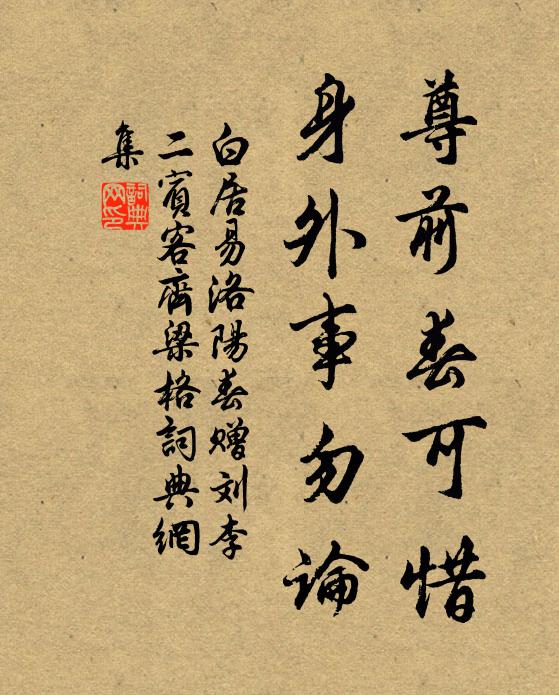 尊前春可惜
身外事勿論
白居易洛陽春贈刘李
二賓客齊梁格詞典網
集
詞典
网印